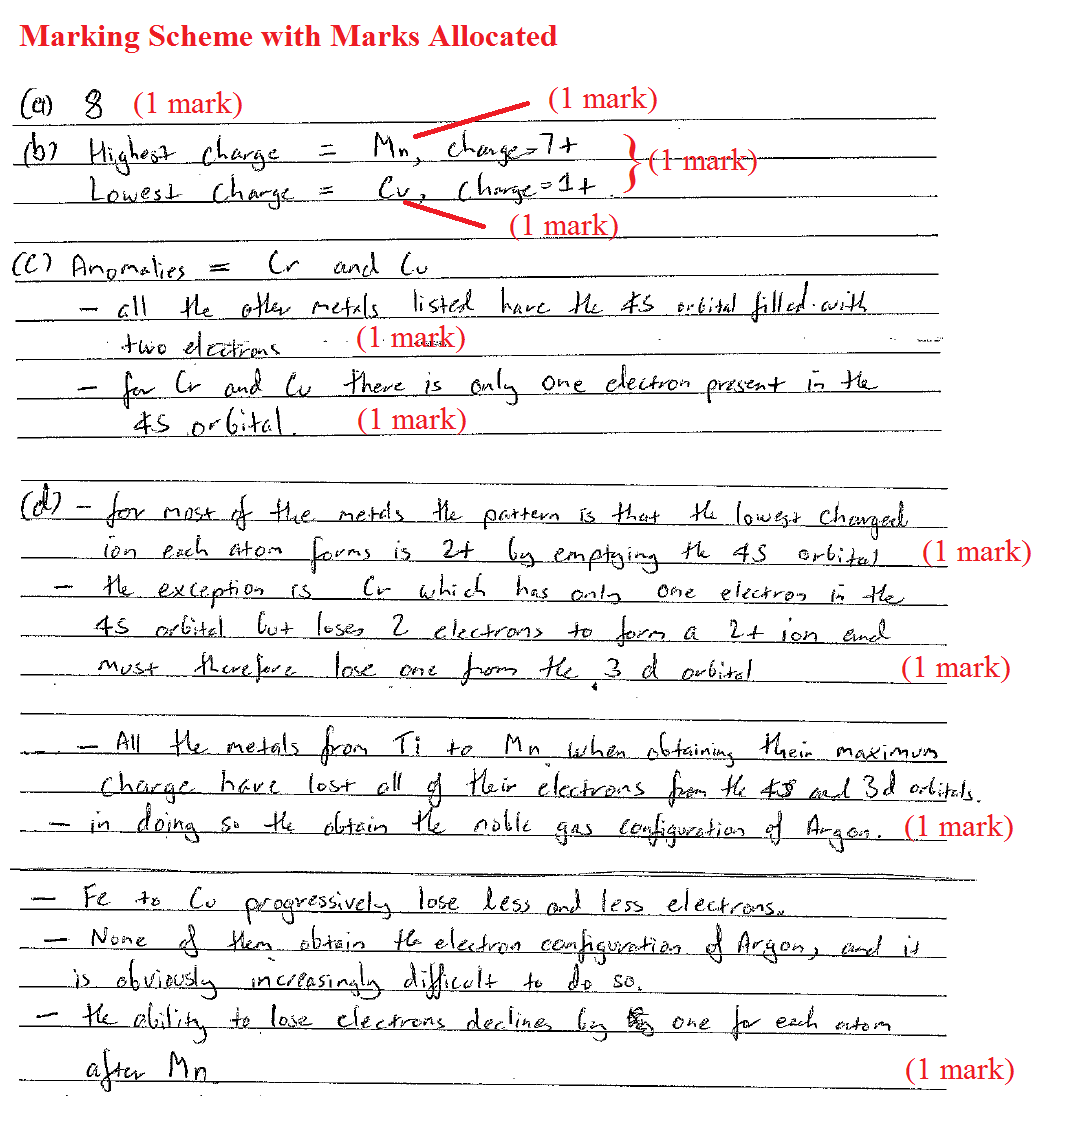 Marking Scheme with Marks Allocated
(a) 8 (1 mark) (1 mark)
(b) Highest charge = Mn, charge=7+ (1 mark)
Lowest charge = Cu, Charge=1+
(1 mark)
(c) Anomalies = Cr and Cu
- all the other metals listed have the 4S orbital filled with
two electrons (1 mark)
- for Cr and Cu there is only one electron present in the
4S orbital. (1 mark)
(d) - for most of the metals the pattern is that the lowest charged
ion each atom forms is 2+ by emptying the 4S orbital (1 mark)
- the exception is Cr which has only one electron in the
4S orbital but loses 2 electrons to form a 2+ ion and
must therefore lose one from the 3d orbital (1 mark)
- All the metals from Ti to Mn when obtaining their maximum
charge have lost all of their electrons from the 4S and 3d orbitals.
- in doing so the obtain the noble gas configuration of Argon. (1 mark)
- Fe to Cu progressively lose less and less electrons.
- None of them obtain the electron configuration of Argon, and it
is obviously increasingly difficult to do so.
- the ability to lose electrons declines by one for each atom
after Mn. (1 mark)